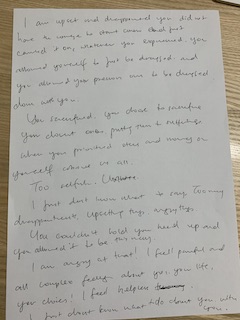 I am upset and disappointed you did not
have the courage to about even and just
carried it on, whatever you experienced. You
allowed yourself to just be dismissed and
you allowed your precious one to be dismissed
down with you.
You sacrificed. You chose to sacrifice
You didn't even
when you prioritised stress and money on
yourself above us all.
Too selfish.
I just don't know what to say. Too many
disappointments, upsetting things, angry things.
You couldn't hold your head up and
you allowed it to be this way.
I am angry at that! I feel painful and
all complex feelings about you, your life,
your choices! I feel helpless
I just don't know what to do about you with
you.